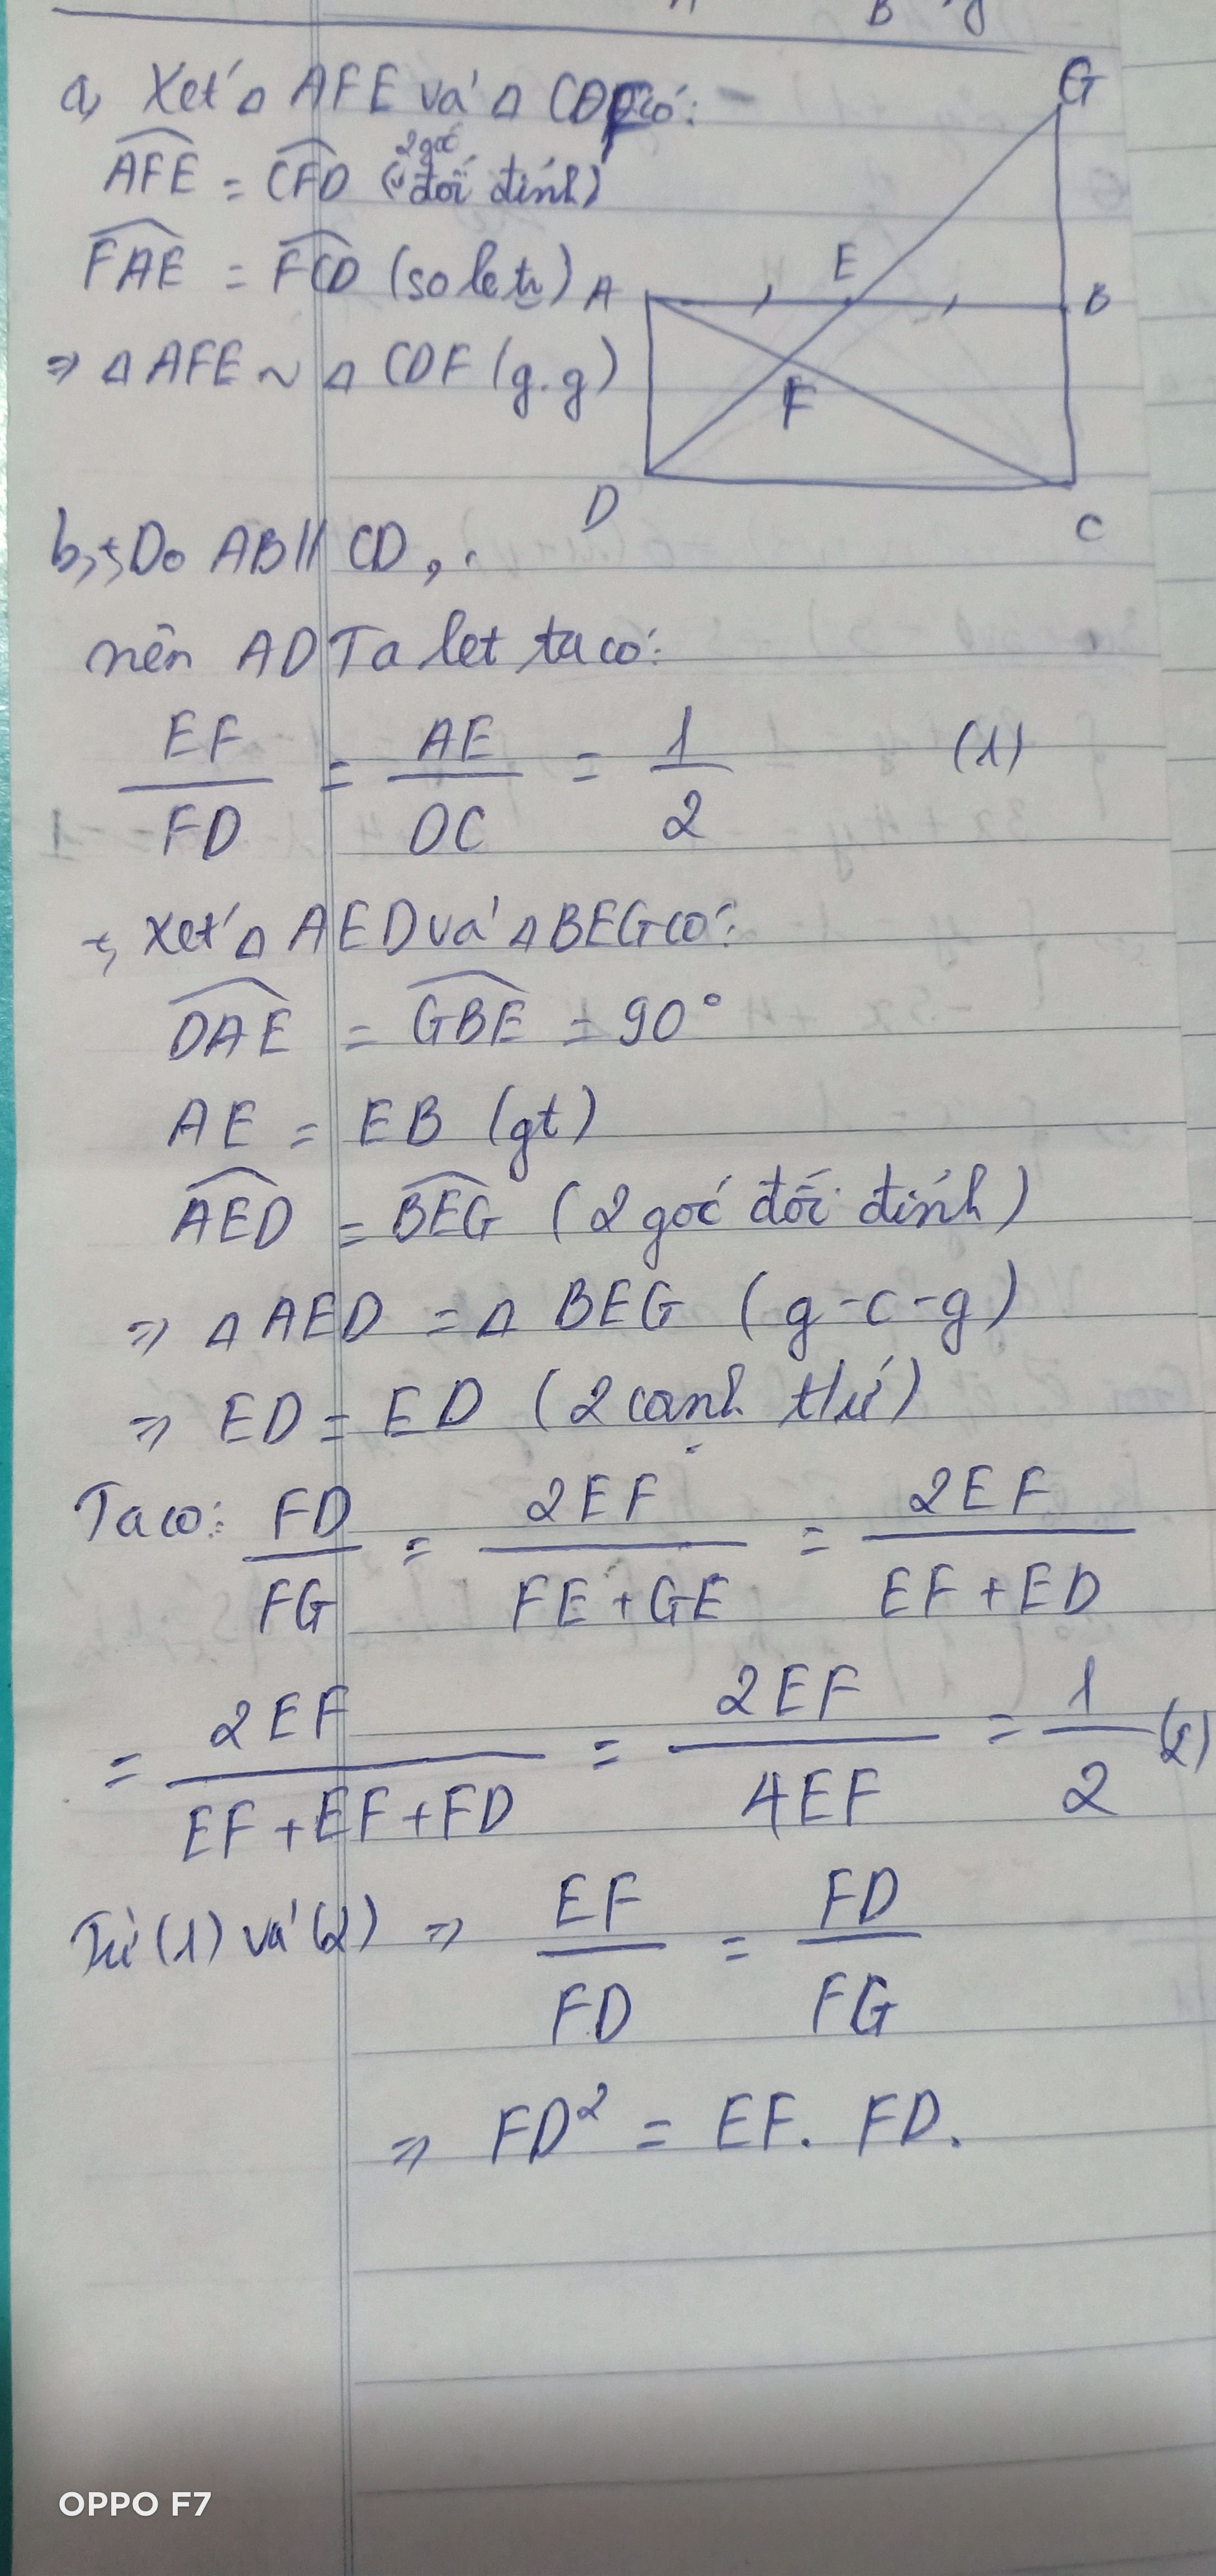 B g
a, Xét △ AFE và △ CDF có:
AFE = CFD (2 góc đối đỉnh)
FAE = FCD (so le tr)
⇒ △ AFE ~ △ CDF (g.g)
G
E
A
B
F
D
C
b, +, Do AB // CD,
nên AD Ta let ta có:
EF/FD = AE/DC = 1/2 (1)
+, Xét △ AED và △ BEG có:
DAE = GBE = 90°
AE = EB (gt)
AED = BEG (2 góc đối đỉnh)
⇒ △ AED = △ BEG (g-c-g)
⇒ ED = ED (2 canh thứ)
Ta có: FD/FG = 2EF/FE+GE = 2EF/EF+ED
= 2EF/EF+EF+FD = 2EF/4EF = 1/2 (2)
Từ (1) và (2) ⇒ EF/FD = FD/FG
⇒ FD² = EF. FD.
OPPO F7